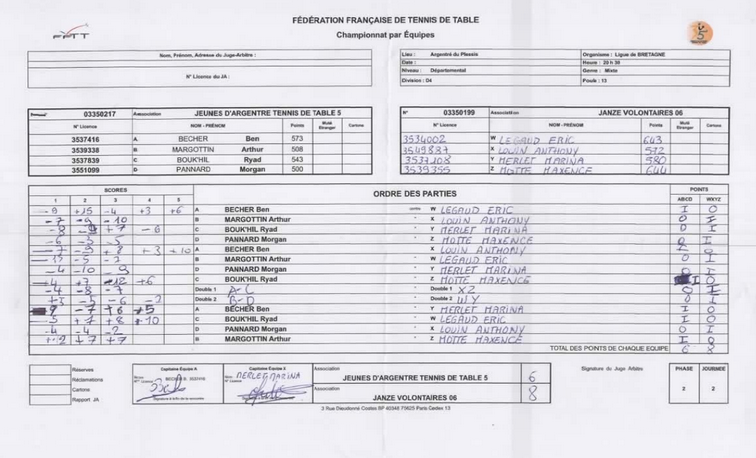 FÉDÉRATION FRANÇAISE DE TENNIS DE TABLE
Championnat par Équipes
FFTT
Nom, Prénom, Adresse du Juge-Arbitre :
N° License du JA :
Lieu : Argentré du Plessis
Date :
Niveau : Départemental
Division : D4
Organisme : Ligue de BRETAGNE
Heure : 20 h 30
Genre : Mixte
Poule : 13
03350217 Association JEUNES D'ARGENTRE TENNIS DE TABLE 5
N° Licence NOM - PRÉNOM Points Muté Etranger Cartons
3537416 A BECHER Ben 573
3539338 B MARGOTTIN Arthur 508
3537839 C BOUK'HIL Ryad 543
3551099 D PANNARD Morgan 500
N° 03350199 Association JANZE VOLONTAIRES 06
N° Licence NOM - PRÉNOM Points Muté Etranger Cartons
3534002 W LEGAUD ERIC 643
3549837 X LOUIN ANTHONY 572
3537108 Y MERLET MARINA 580
3539355 Z MOTTE MAXENCE 644
SCORES ORDRE DES PARTIES POINTS
1 2 3 4 5 ABCD WXYZ
-9 +15 -4 +3 +6 A BECHER Ben contre W LEGAUD ERIC I O
-7 -9 -10 B MARGOTTIN Arthur " X LOUIN ANTHONY O I
-8 -9 +7 -6 C BOUK'HIL Ryad " Y MERLET MARINA O I
-6 -3 -5 D PANNARD Morgan " Z MOTTE MAXENCE O I
-7 -9 +8 +3 +10 A BECHER Ben " X LOUIN ANTHONY
-5 B MARGOTTIN Arthur " W LEGAUD ERIC O I
-4 -10 -9 D PANNARD Morgan " Y MERLET MARINA O I
-4 +7 -12 +6 C BOUK'HIL Ryad " Z MOTTE MAXENCE I O
-4 -8 -7 Double 1 A-C " Double 1 XZ O I
+3 -5 -6 -2 Double 2 B-D " Double 2 WY O I
-7 +6 +5 A BECHER Ben " Y MERLET MARINA I O
+7 +8 +10 C BOUK'HIL Ryad " W LEGAUD ERIC I O
-4 -4 -2 D PANNARD Morgan " X LOUIN ANTHONY O I
+7 +7 B MARGOTTIN Arthur " Z MOTTE MAXENCE I O
TOTAL DES POINTS DE CHAQUE EQUIPE 6 8
Réserves
Réclamations
Cartons
Rapport JA
Capitaine Équipe A
Capitaine Équipe X
Nom MERLET MARINA
Association
JEUNES D'ARGENTRE TENNIS DE TABLE 5 6
Association
JANZE VOLONTAIRES 06 8
Signature du Juge Arbitre
PHASE JOURNEE
2 2
3 Rue Dieudonné Costes BP 40348 75625 Paris Cedex 13